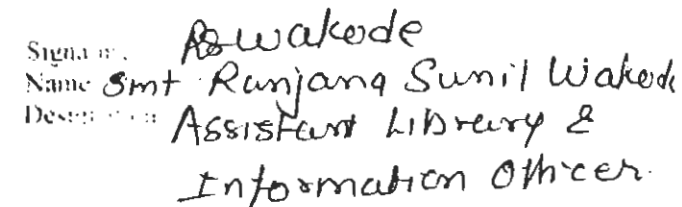 Signature RSwakode
Name Smt Ranjana Sunil Wakode
Designation Assistant Library &
Information Officer.